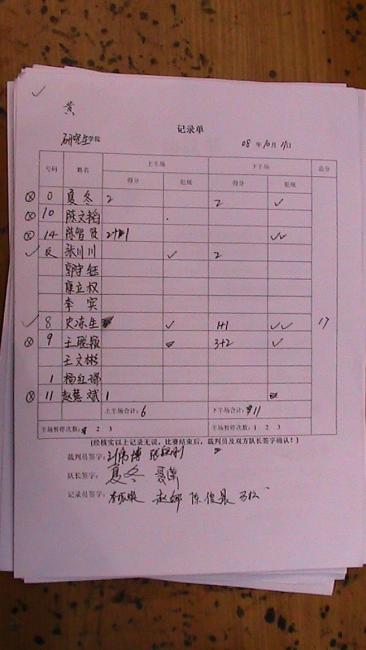 黄
记录单
研究生学院 08 年 10 月 11日
号码 姓名 上半场 下半场 总分
得分 犯规 得分 犯规
0 夏冬 2 2 ✓
10 陈文韬
14 陈智 ✓✓
张川川 ✓ 2
郭守钰
康立权
李实
8 史冻生 ✓ 1+1 ✓✓ 17
9 王 3+2 ✓
王文彬
1 杨红
11 赵 斌 1
上半场合计:6 下半场合计:11
半场暂停次数: 2 3 半场暂停次数:1 2 3
(经核实以上记录无误,比赛结束后,裁判员及双方队长签字确认!)
裁判员签字:
队长签字:夏冬
记录员签字: 赵娜 陈俊晨